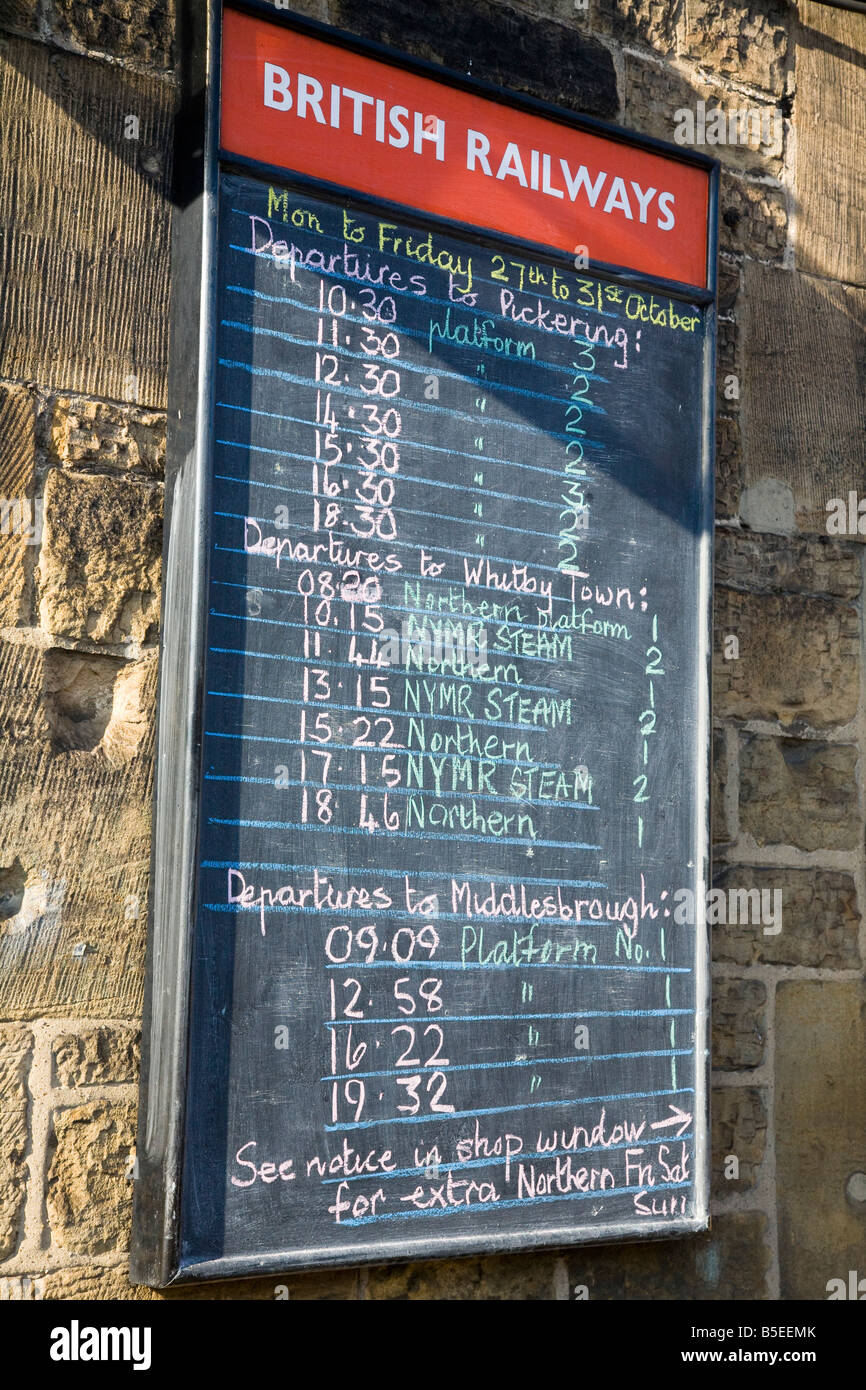 BRITISH RAILWAYS
Mon to Friday 27th to 31st October
Departures to Pickering:
10·30 platform 3
11·30 " 2
12·30 " 2
14·30 " 2
15·30 " 3
16·30 " 2
18·30 " 2
Departures to Whitby Town:
08·20 Northern platform 1
10·15 NYMR STEAM 2
11·44 Northern 1
13·15 NYMR STEAM 2
15·22 Northern 1
17·15 NYMR STEAM 2
18·46 Northern 1
Departures to Middlesbrough:
09·09 Platform No.1
12·58 " 1
16·22 " 1
19·32 " 1
See notice in shop window →
for extra Northern Fri Sat
Sun
alamy
Image ID: B5EEMK
www.alamy.com